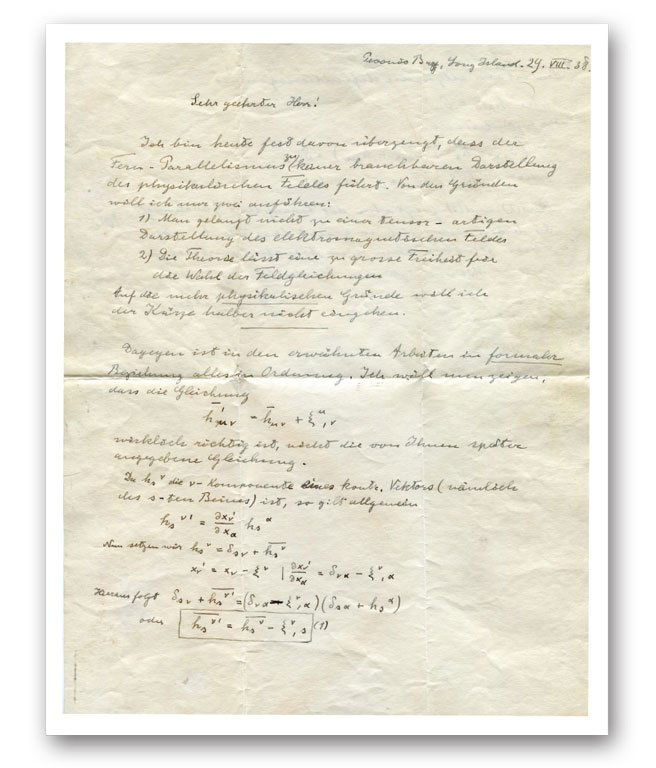 Peconic Bay, Long Island. 29. VIII. 38.
Sehr geehrter Herr!
Ich bin heute fest davon überzeugt, dass der
Fern-Parallelismus zu keiner brauchbaren Darstellung
des physikalischen Feldes führt. Von den Gründen
will ich nur zwei anführen:
1) Man gelangt nicht zu einer tensor-artigen
Darstellung des elektromagnetischen Feldes
2) Die Theorie lässt eine zu grosse Freiheit für
die Wahl der Feldgleichungen
Auf die mehr physikalischen Gründe will ich
der Kürze halber nicht eingehen.
Dagegen ist in den erwähnten Arbeiten in formaler
Beziehung alles in Ordnung. Ich will nun zeigen,
dass die Gleichung
h̅'μν = h̅μν + ξ^μ,ν
wirklich richtig ist, nicht die von Ihnen später
angegebene Gleichung.
Da hs^ν die ν-Komponente eines kontr. Vektors (nämlich
des s-ten Beines) ist, so gilt allgemein
hs^ν' = ∂xν'/∂xα hs^α
Nun setzen wir hs^ν = δsν + h̅s^ν
xν' = xν - ξ^ν | ∂xν'/∂xα = δνα - ξ^ν,α
Hieraus folgt δsν + h̅s^ν' = (δνα - ξ^ν,α)(δsα + h̅s^α)
oder h̅s^ν' = h̅s^ν - ξ^ν,s (1)